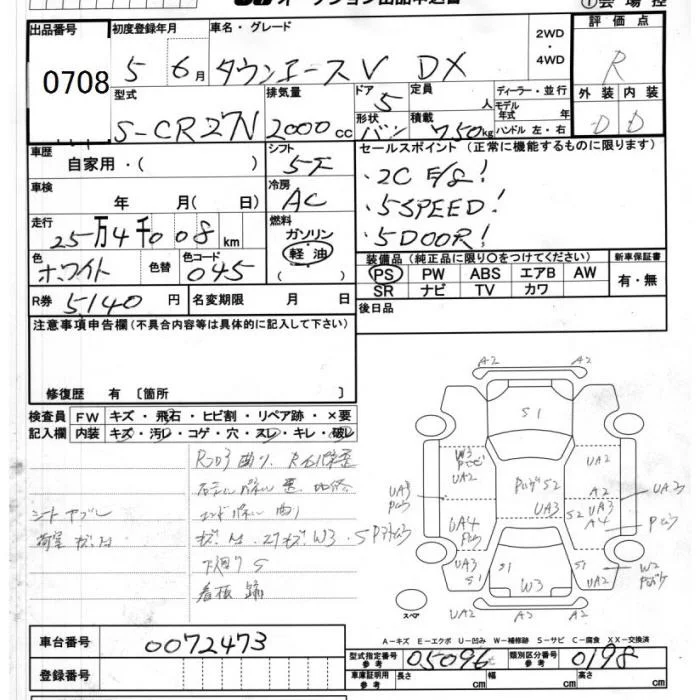 オークション出品申込書 ①会場控
出品番号 初度登録年月 車名・グレード 2WD・4WD 評価点
0708 5 6月 タウンエースV DX R
型式 排気量 ドア 5 定員 人 ディーラー・並行 外装 内装
S-CR27N 2000cc 形状 バン 積載 750kg モデル年式 年 ハンドル 左・右 D D
車歴 自家用・( ) シフト 5F セールスポイント (正常に機能するものに限ります)
車検 年 月( 日) 冷房 AC ・2C E/g!
走行 25万4千008km 燃料 ガソリン 軽油 ( ) ・5SPEED!
・5DOOR!
色 ホワイト 色替 色コード 045 装備品 (純正品に限り○をつけてください) 新車保証書
PS PW ABS エアB AW 有・無
SR ナビ TV カワ
R券 5140円 名変期限 月 日 後日品
注意事項申告欄(不具合内容等は具体的に記入して下さい)
修復歴 有 〔箇所 〕
検査員 FW キズ・飛石・ヒビ割・リペア跡・×要
記入欄 内装 キズ・汚レ・コゲ・穴・スレ・キレ・破レ
シートヤブレ
エンドパネル曲り
下回りS
看板跡
A2 A2
S1
W3 UA2 UA2
S2 A2 UA3
UA3 UA3 S2 UA3
UA4 A4
UA3 S1 S1 UA2 W2
W3
スペア UA2 A3 A2
A-キズ E-エクボ U-凹み W-補修跡 S-サビ C-腐食 XX-交換済
車台番号 0072473
型式指定番号 参考 05096 類別区分番号 参考 0198
登録番号 車庫証明用 参考 長さ cm 幅 cm 高さ cm